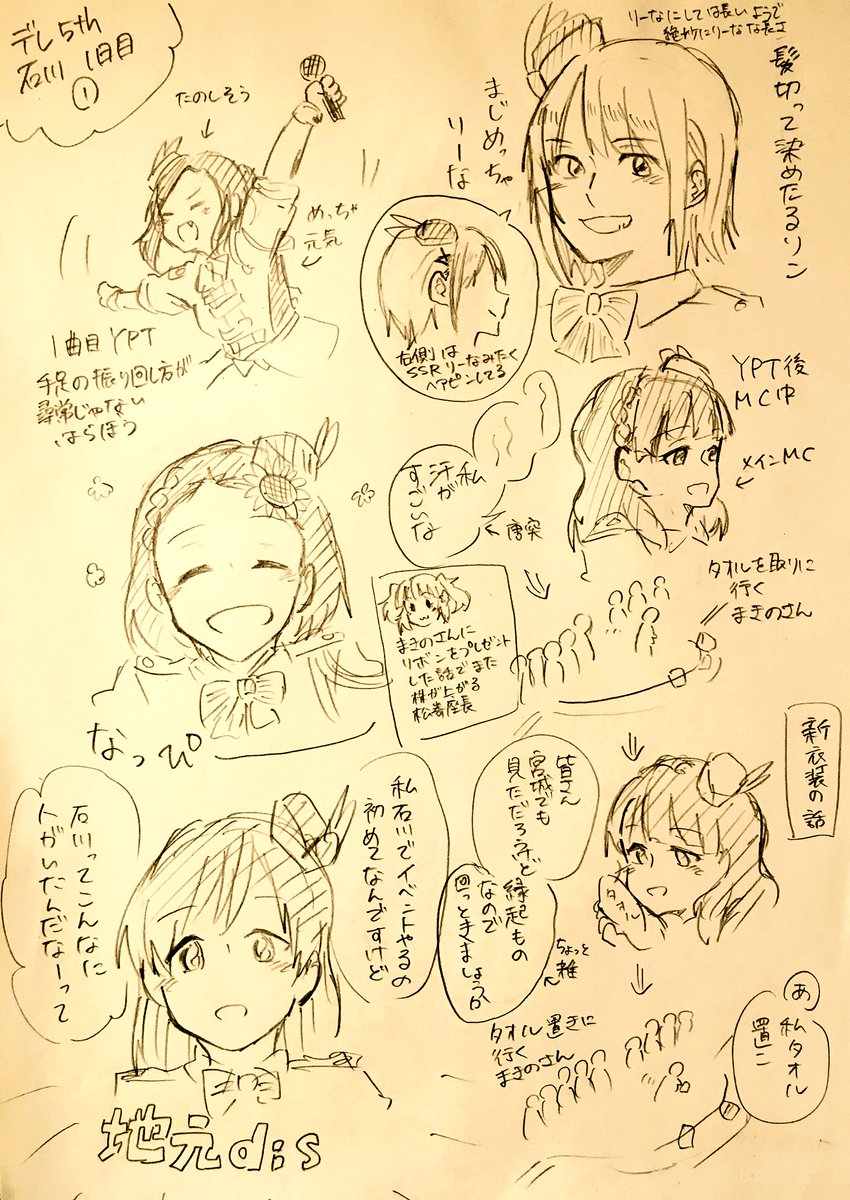 デレ5th
石川 1日目
①
たのしそう
めっちゃ
元気
1曲目YPT
手足の振り回し方が
尋常じゃない
はらほう
リーなにしては長いようで
絶妙にリーなな長さ
髪切って染めたるリン
まじめっちゃ
リーな
右側は
SSRリーなみたく
ヘアピンしてる
YPT後
MC中
メインMC
私
汗が
すごいな
唐突
タオルを取りに
行く
まきのさん
まきのさんに
リボンをプレゼント
した話でまた
株が上がる
松嵜座長
なっぴ
新衣装の話
皆さん
宮城でも
見ただろうけど
縁起もの
なので
回っときましょうか
ちょっと雑
タオル
あ
私タオル
置こ
タオル置きに
行く
まきのさん
私石川でイベントやるの
初めてなんですけど
石川ってこんなに
人がいたんだなーって
地元d:s